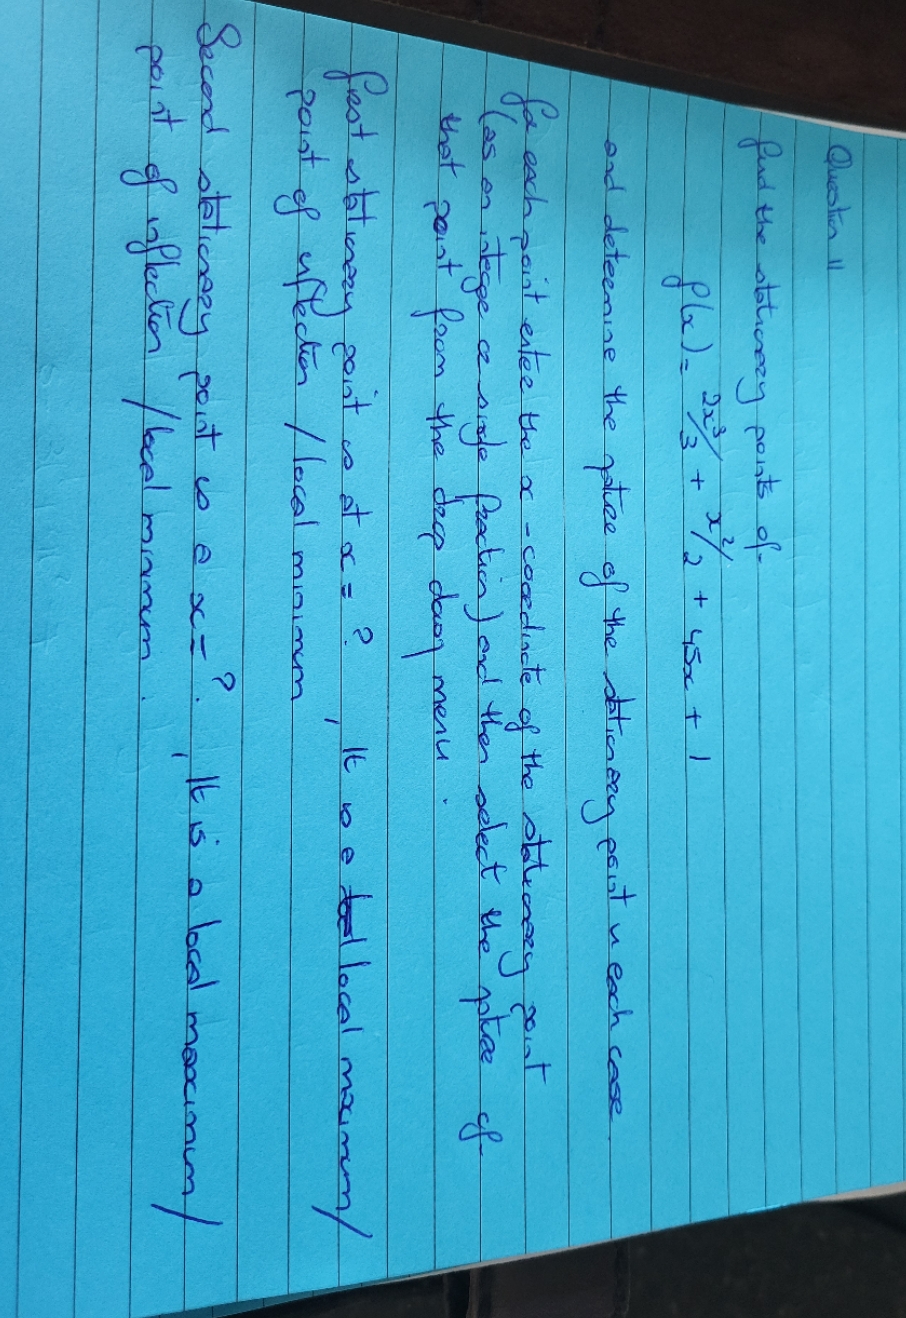 Question 11
find the stationary points of
f(x) = 2x³/3 + x²/2 + 45x + 1
and determine the nature of the stationary point in each case.
for each point enter the x-coordinate of the stationary point
(as an integer or single fraction) and then select the nature of
that point from the drop down menu.
first stationary point is at x = ? , It is a local maximum/
point of inflection / local minimum
Second stationary point is @ x = ? , It is a local maximum/
point of inflection / local minimum.